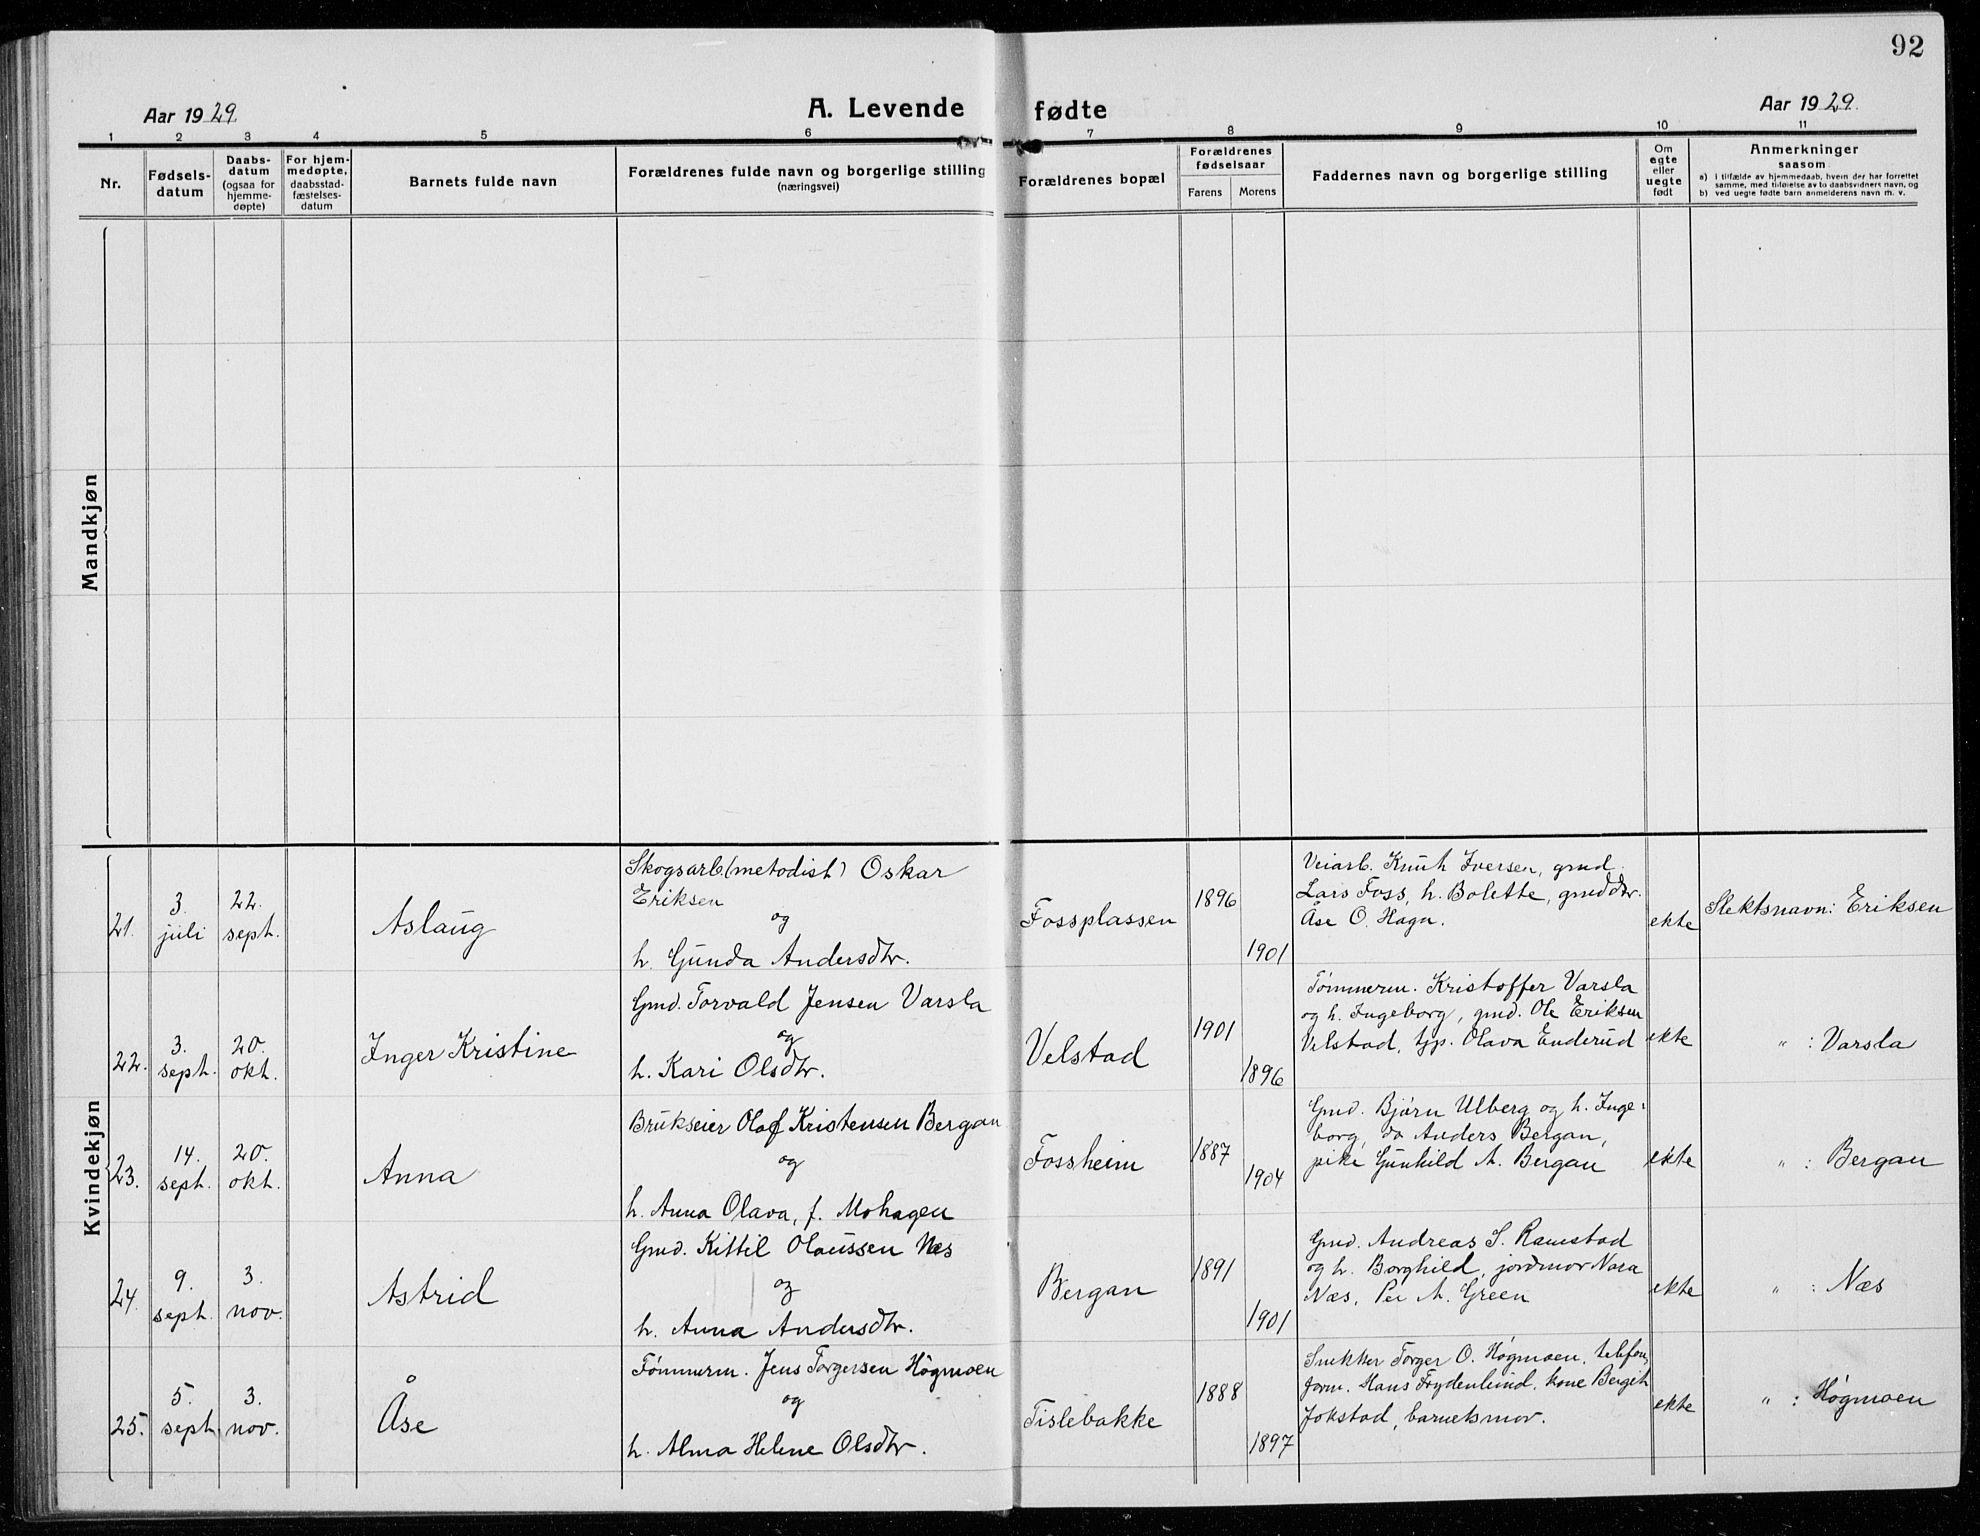 92
Aar 1929
A. Levende fødte
Aar 1929.
1 2 3 4 5 6 7 8 9 10 11
Nr.
Fødsels-
datum
Daabs-
datum
(ogsaa for
hjemme-
døpte)
For hjem-
medøpte,
daabsstad-
fæstelses-
datum
Barnets fulde navn
Forældrenes fulde navn og borgerlige stilling
(næringsvei)
Forældrenes bopæl
Forældrenes
fødselsaar
Farens Morens
Faddernes navn og borgerlige stilling
Om
egte
eller
uegte
født
Anmerkninger
saasom
a) i tilfælde av hjemmedaab, hvem der har forrettet
samme, med tilføielse av to daabsvidners navn, og
b) ved uegte fødte barn anmelderens navn m. v.
Mandkjøn
Kvindekjøn
21.
3.
juli
22.
sept.
Aslaug
Skogsarb. (metodist) Oskar
Eriksen
og
h. Gunda Andersdtr.
Fossplassen
1896
1901
Veiarb. Knut Iversen, gmd.
Lars Foss, h. Bolette, gmddtr.
Åse O. Hagn.
ekte
Slektsnavn: Eriksen
22.
3.
sept.
20.
okt.
Inger Kristine
Gmd. Torvald Jensen Varsla
og
h. Kari Olsdtr.
Velstad
1901
1896
Tømmerm. Kristoffer Varsla
og h. Ingeborg, gmd. Ole Eriksen
Velstad, tjp. Olava Enderud
ekte
" : Varsla
23.
14.
sept.
20.
okt.
Anna
Brukseier Olaf Kristensen Bergan
og
h. Anna Olava, f. Mohagen
Fossheim
1887
1904
Gmd. Bjørn Ulberg og h. Inge-
borg, do Anders Bergan,
pike Gunhild A. Bergan
ekte
" : Bergan
24.
9.
sept.
3.
nov.
Astrid
Gmd. Kittil Olaussen Næs
og
h. Anna Andersdtr.
Bergan
1891
1901
Gmd. Andreas S. Ramstad
og h. Borghild, jordmor Nora
Næs, Per A. Green
ekte
" : Næs
25.
5.
sept.
3.
nov.
Åse
Tømmerm. Jens Torgersen Høgmoen
og
h. Alma Helene Olsdtr.
Tislebakke
1888
1897
Snekker Torger O. Høgmoen, telefon-
form. Hans Frydenlund, kone Bergit
Jokstad, barnets mor.
ekte
" : Høgmoen